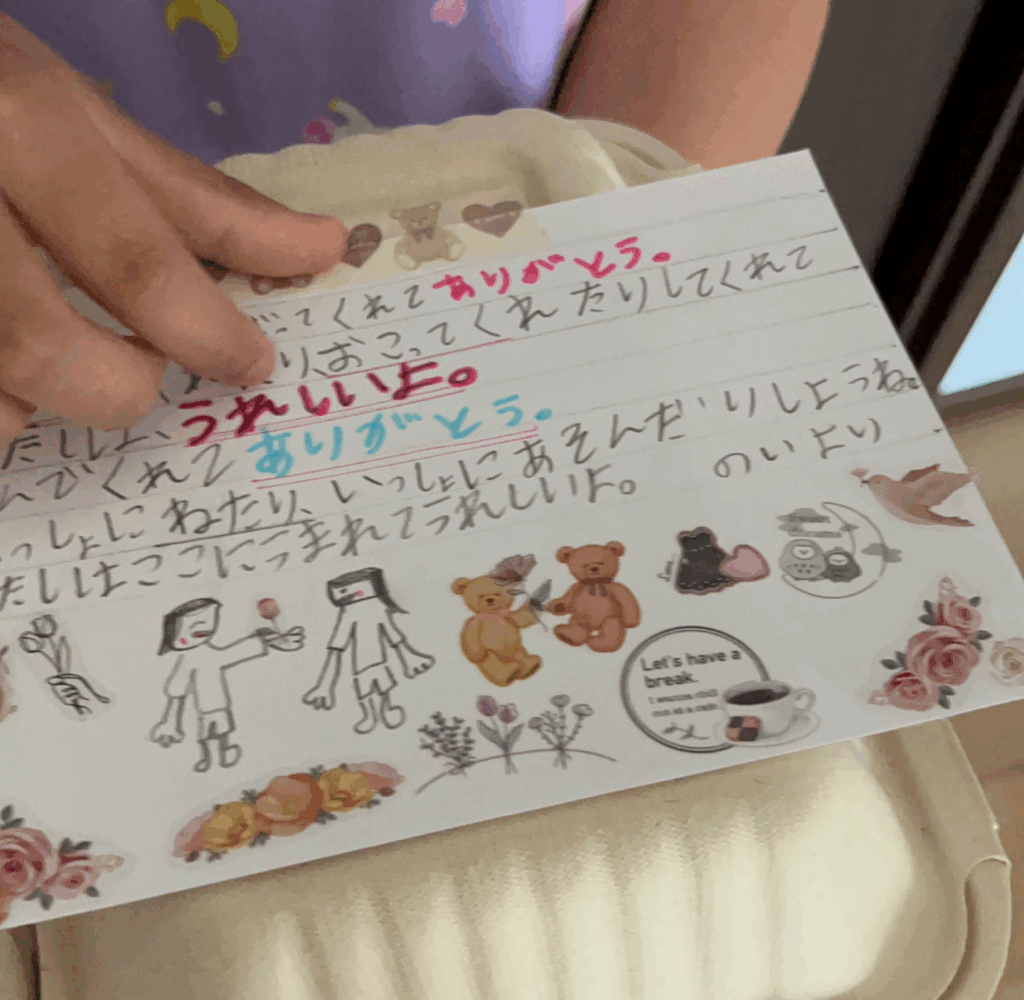 ってくれてありがとう。
り、おこってくれたりしてくれて
だしょ、うれしいよ。
んでくれてありがとう。
っしょにねたり、いっしょにあそんだりしようね。
たしはここにうまれてうれしいよ。
のいより
Let's have a
break.